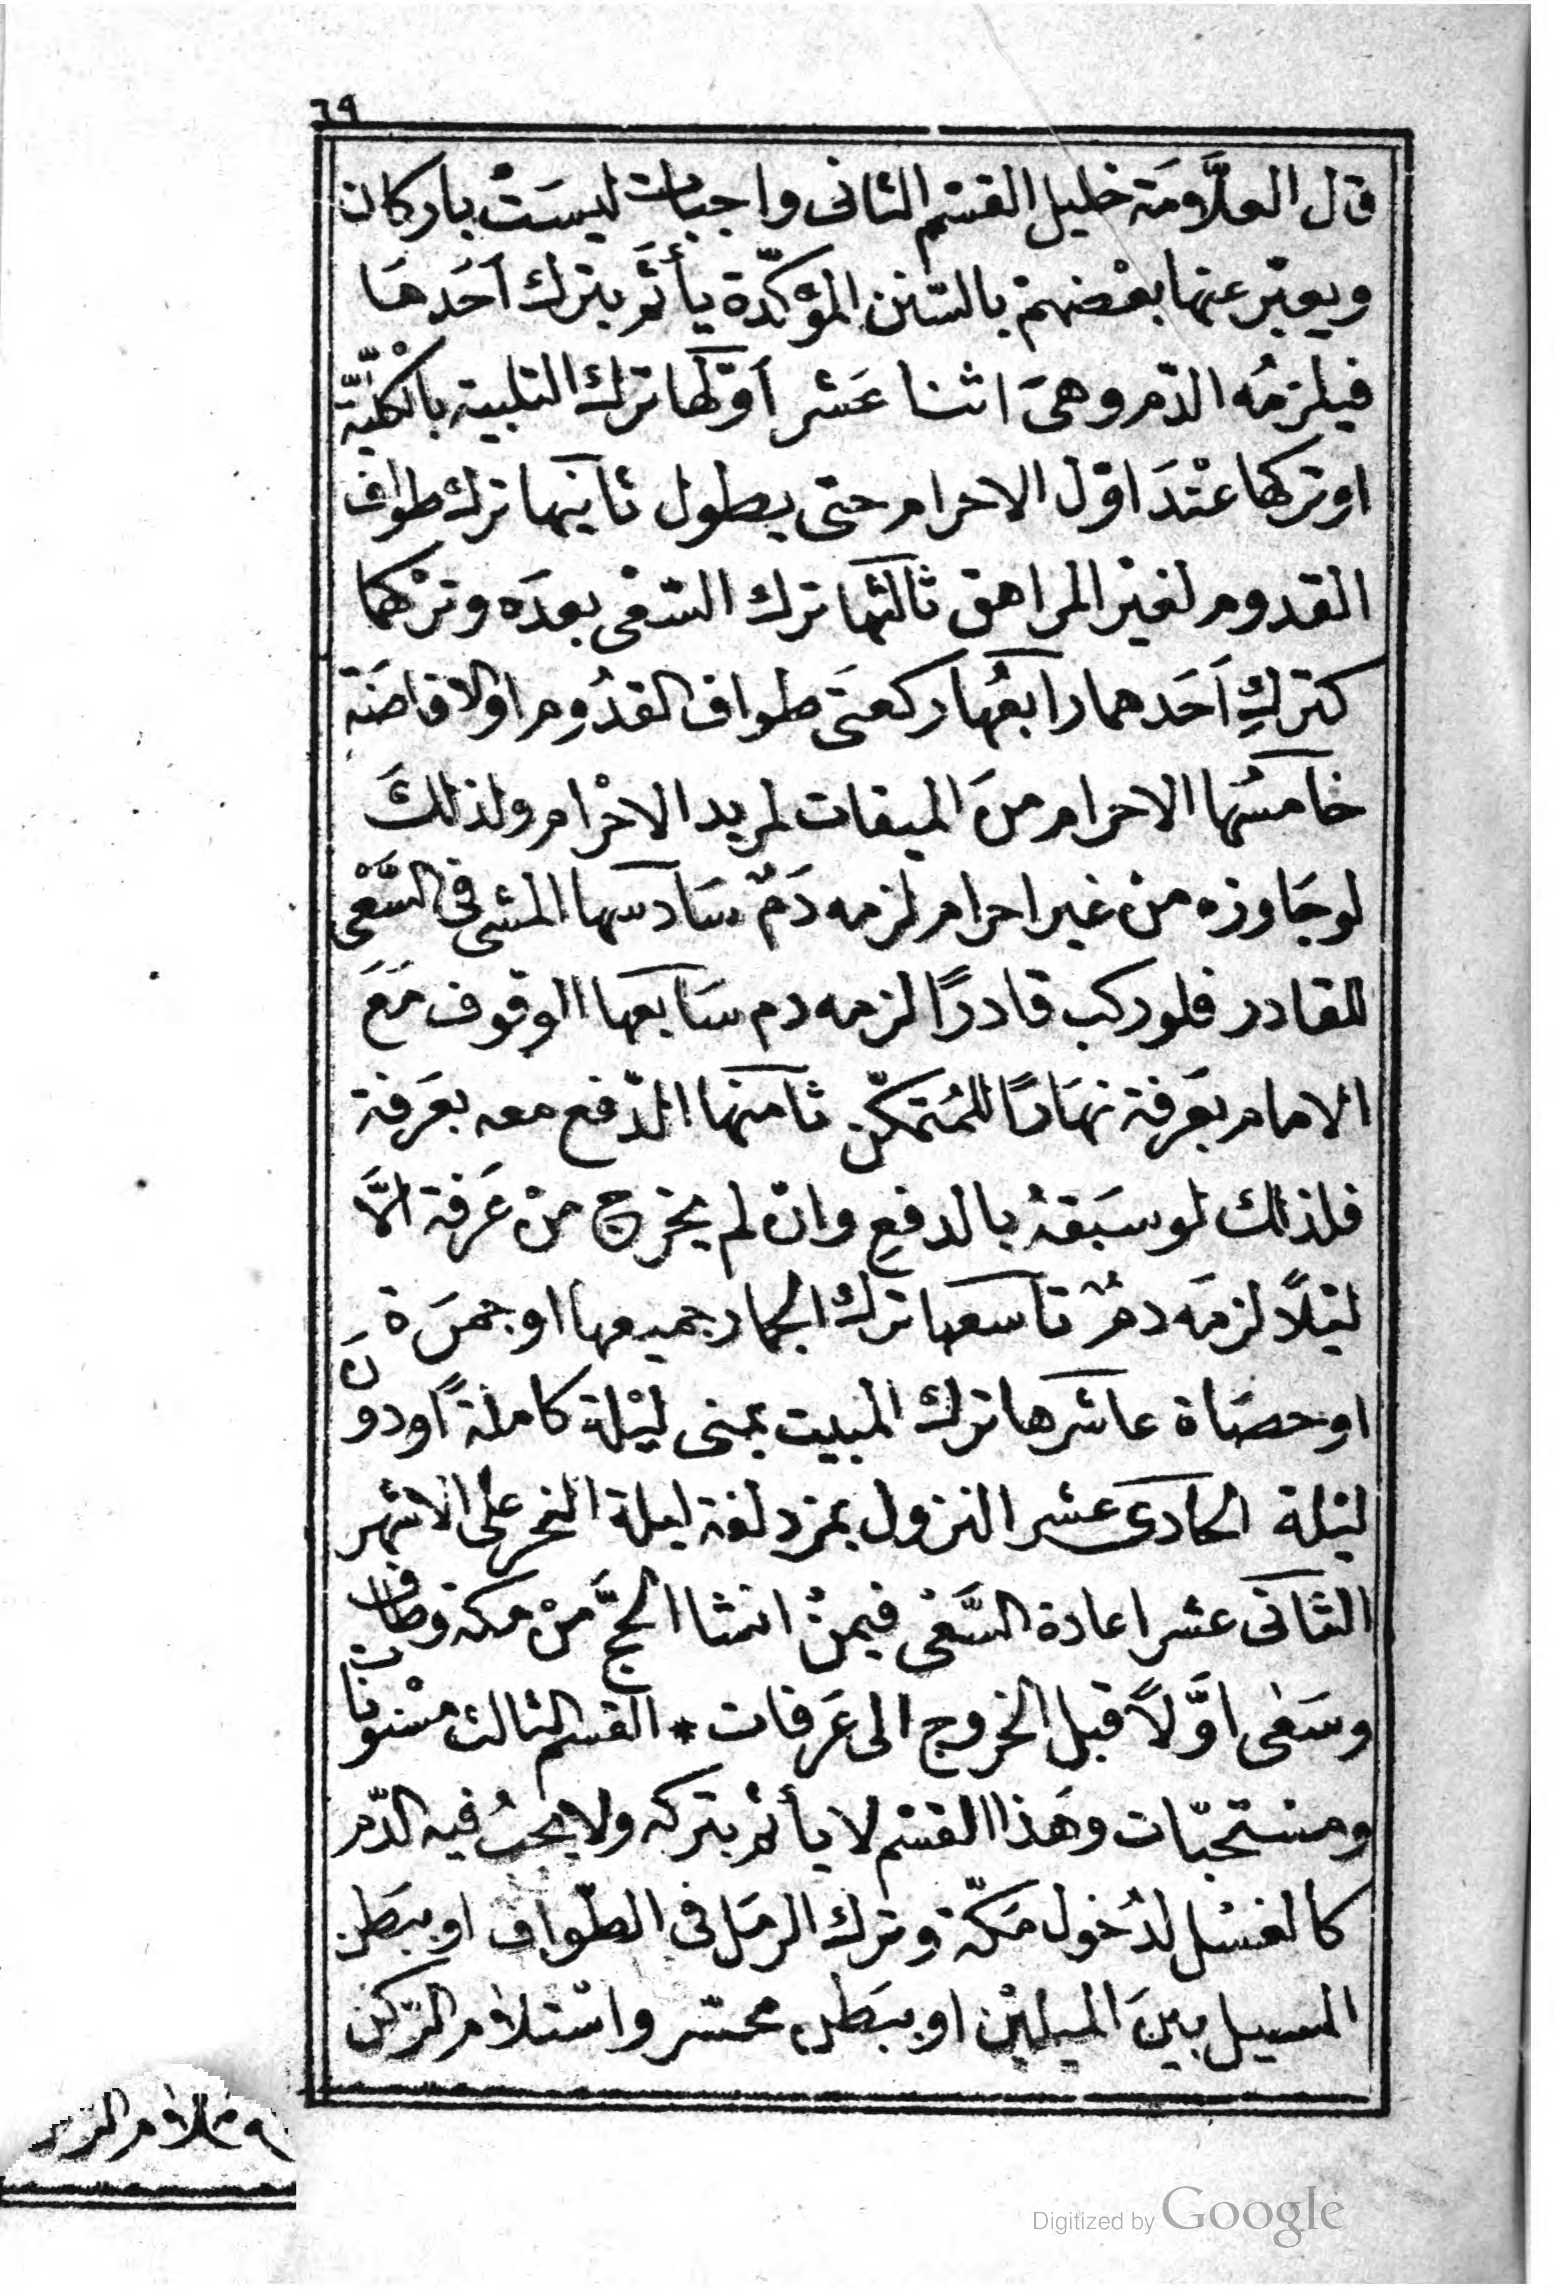 ٦٩
قال العلَّامَة خليل القسْم الثانى واجبات ليسَتْ باركان
ويعبّر عنها بعْضهمْ بالسّنن المؤكّدة يأثَم بترك اَحَدهَا
فيلزمُه الدّم وهىَ اثنا عَشر اَوّلها ترك التلبية بالْكلّيّة
او تركها عنْدَ اوّل الاحرام حتى يطول ثانيها ترك طواف
القدوم لغيْر المراهق ثالثها ترك السّعْى بعدَه وترْكهما
كتركِ اَحَدهما رابعُها ركعتَى طواف القدُومِ او الافاضَة
خامسُها الاحرام منَ الميقات لمريد الاحْرام ولذلكَ
لو جَاوزه منْ غير احرام لزمه دَمٌ سَادسها المشى فى السَّعْى
للقادر فلو ركب قادرًا لزمه دم سَابعها الوقوف مَعَ
الامام بعَرفة نهَارًا للمُتمكّن ثامنها الدّفع معه بعَرفة
فلذلك لو سبَقهُ بالدفعِ وانْ لم يخرج منْ عَرفة الَّا
ليْلًا لزمَه دمٌ تاسعها ترك الجمار جميعها او جمرَة
او حصَاة عاشرها ترك المبيت بمنى ليْلة كاملةً او دونَ
ليْلة الحادى عشر النزول بمزدلفة ليلة النحر على الاشهر
الثانى عشر اعادة السَّعْى فيمنْ انشا الحجَّ منْ مكة وطاف
وسَعٰى اوَّلًا قبل الخروج الى عَرفات * القسم الثالث مسْنونات
ومستحبّات وهَذا القسْم لا يأثم بتركه ولا يجبُ فيه الدّم
كالغسْل لدُخول مَكّة وترك الرمَل فى الطّواف او ببَطن
المسيل بينَ الميليْن او ببَطن محسّر واسْتلام الرّكن
Digitized by Google